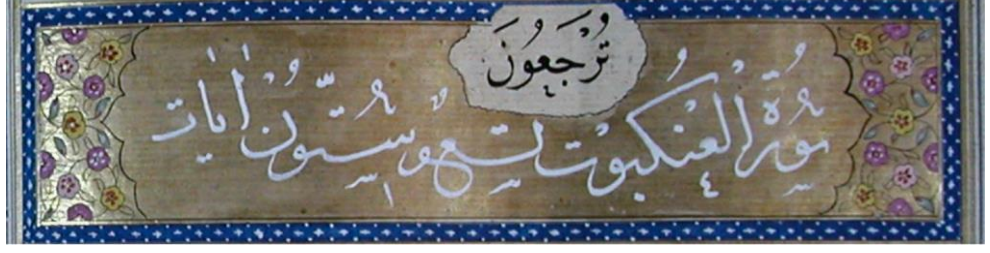 تُرْجَعُونَ
سُورَةُ الْعَنْكَبُوتِ تِسْعٌ وَسِتُّونَ اٰيَات